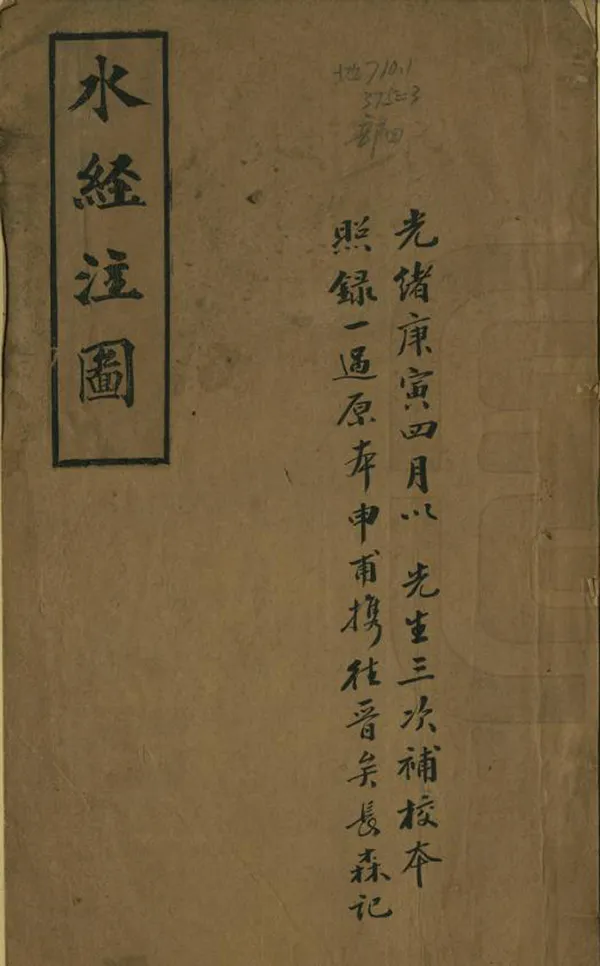 水經注圖
地710.1
375=3
光緒庚寅四月以 先生三次補校本
照錄一過原本申甫攜往晉矣長森記